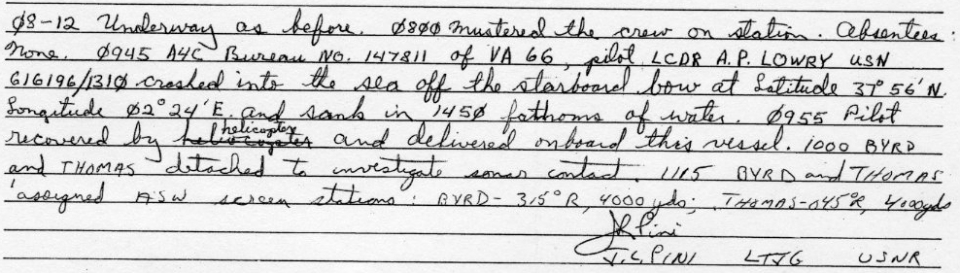 Ø8-12 Underway as before. Ø8ØØ Mustered the crew on station. Absentees:
None. Ø945 A4C Bureau NO. 147811 of VA 66, pilot LCDR A.P. LOWRY USN
616196/131Ø crashed into the sea off the starboard bow at Latitude 37° 56' N.
Longitude Ø2° 24' E, and sank in 145Ø fathoms of water. Ø955 Pilot
recovered by helicopter and delivered onboard this vessel. 1000 BYRD
and THOMAS detached to investigate sonar contact. 1115 BYRD and THOMAS
assigned ASW screen stations: BYRD - 315°R, 4000 yds; THOMAS - 045°R, 4000yds
JL Pini
J. L. PINI LTJG USNR